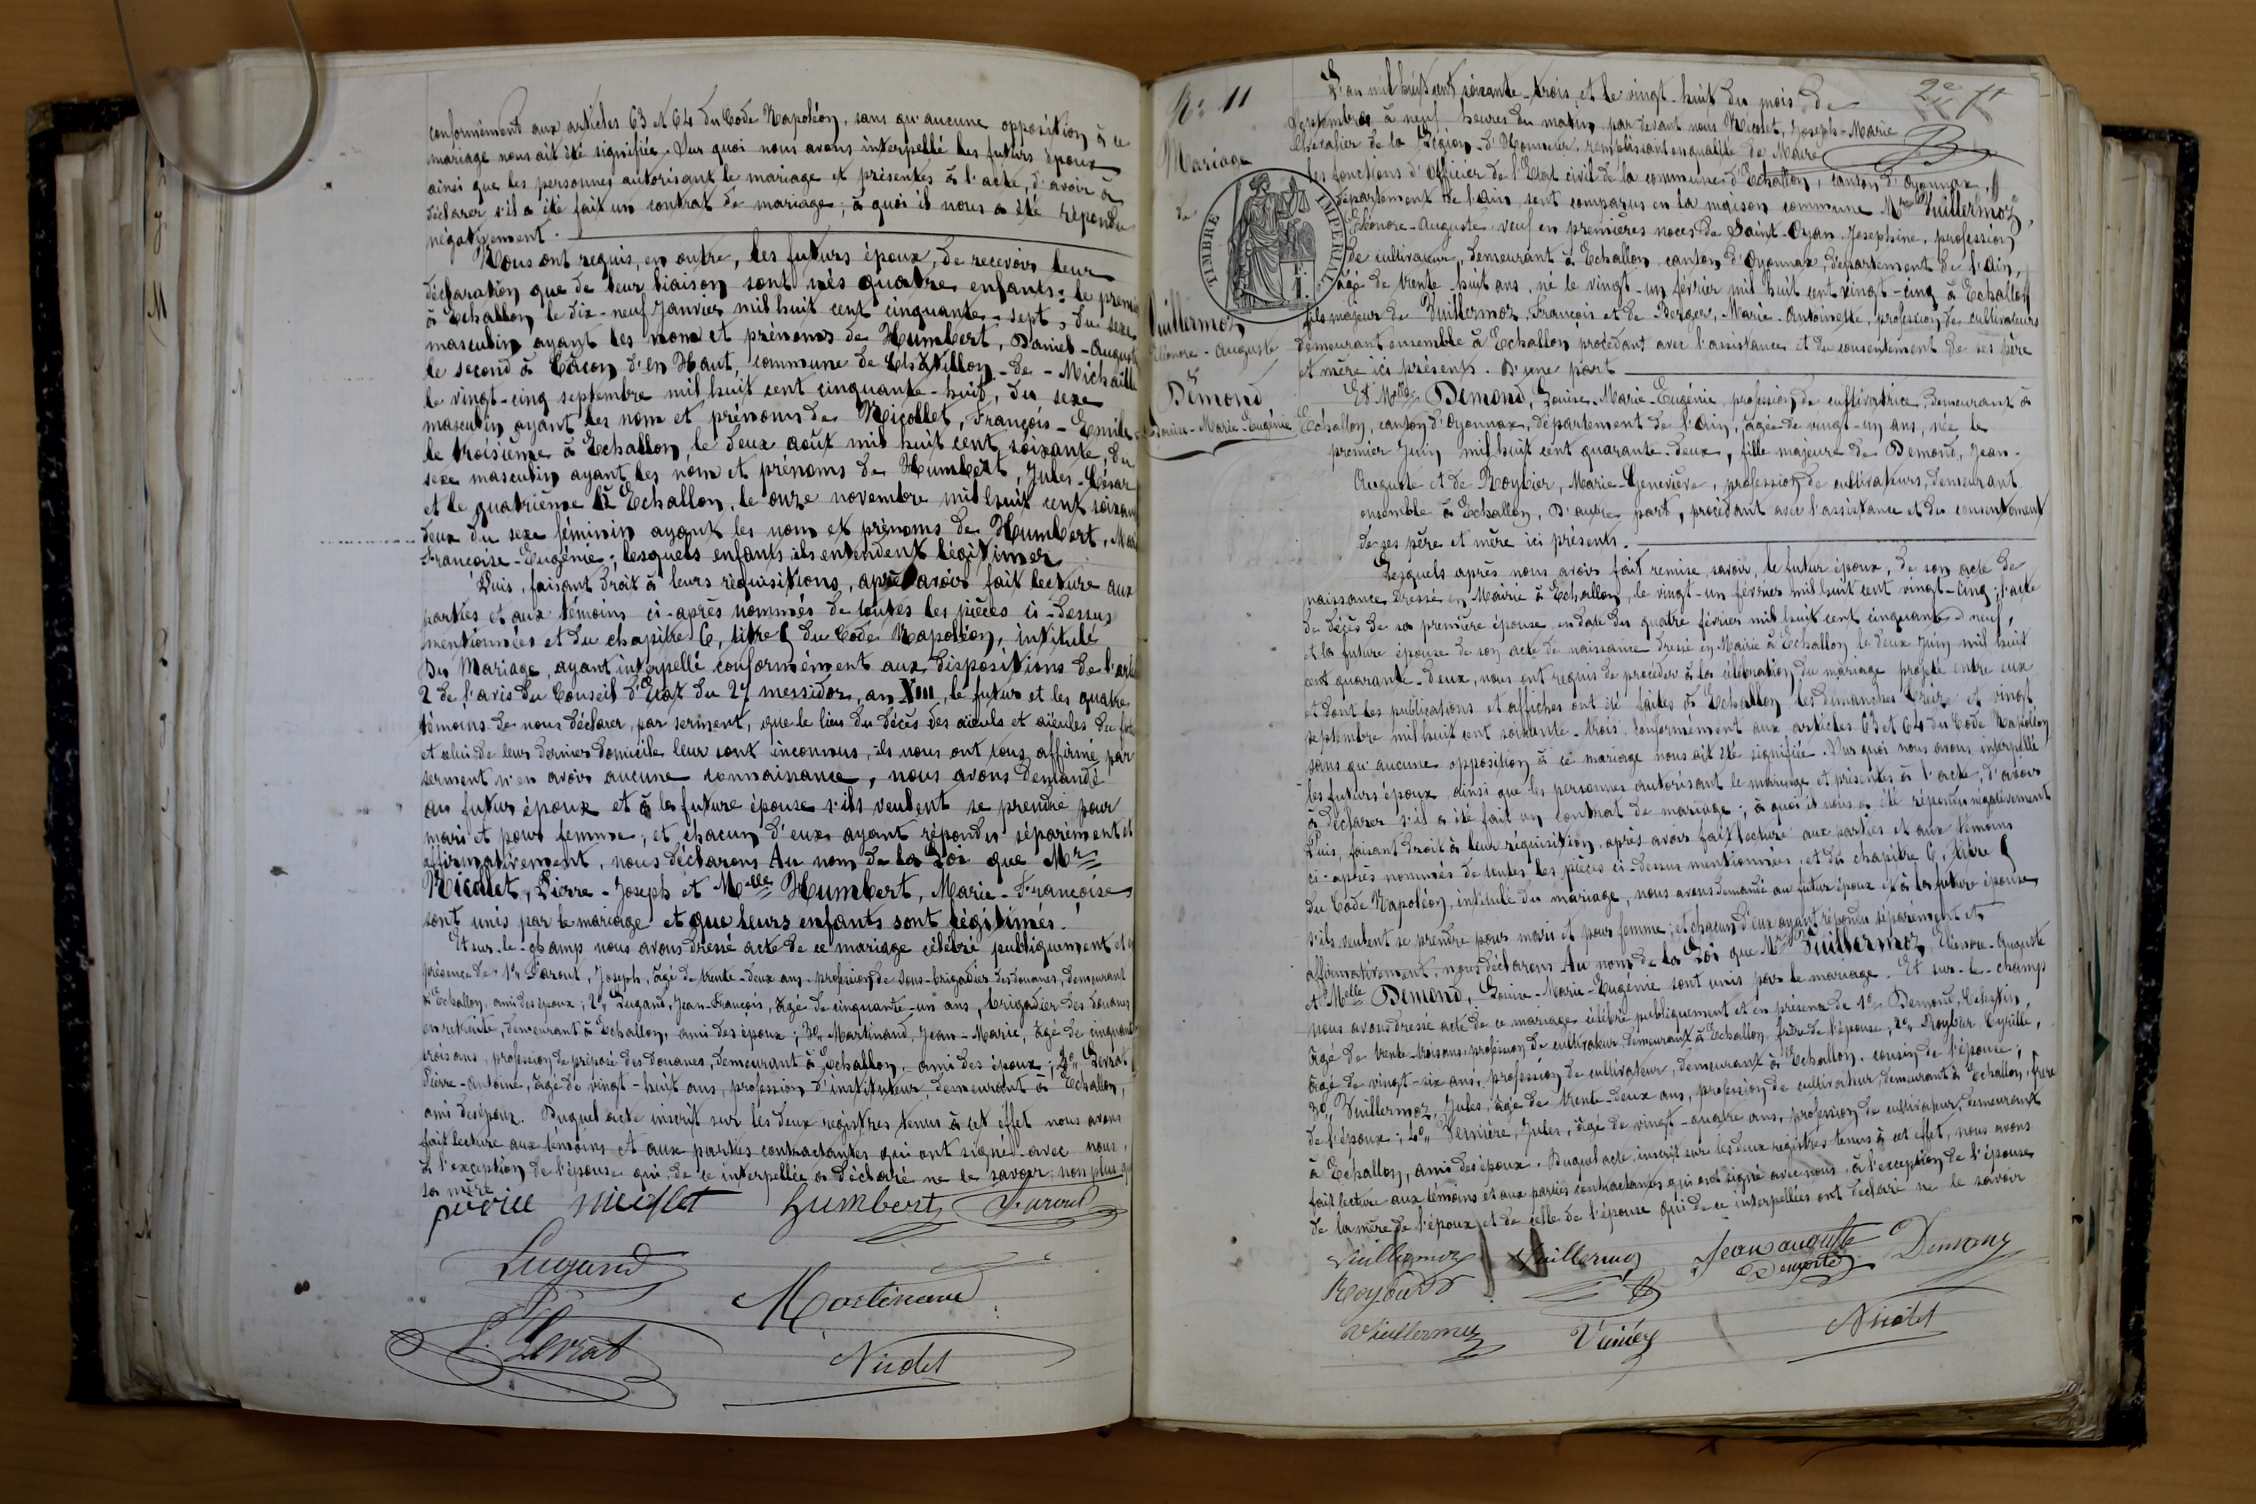 conformément aux articles 63 et 64 du Code Napoléon, sans qu'aucune opposition à ce
mariage nous ait été signifiée. Sur quoi nous avons interpellé les futurs époux
ainsi que les personnes autorisant le mariage et présentes à l'acte, d'avoir à
déclarer s'il a été fait un contrat de mariage; à quoi il nous a été répondu
négativement.
Nous ont requis, en outre, les futurs époux, de recevoir leur
déclaration que de leur liaison sont nés quatre enfants: le premier
à Echallon, le dix-neuf Janvier mil huit cent cinquante-sept, du sexe
masculin ayant les nom et prénoms de Humbert, Daniel-Auguste
le second à d'en Haut, commune de Châtillon-de-Michaille
le vingt-cinq septembre mil huit cent cinquante-huit, du sexe
masculin ayant les nom et prénoms de Nicollet, François-Emile
le troisième à Echallon, le deux août mil huit cent soixante, du
sexe masculin ayant les nom et prénoms de Humbert, Jules-César
et le quatrième à Echallon, le onze novembre mil huit cent soixante
deux du sexe féminin ayant les nom et prénoms de Humbert,
Françoise-Eugénie; lesquels enfants ils entendent légitimer
Puis, faisant droit à leurs réquisitions, après avoir fait lecture aux
parties et aux témoins ci-après nommés de toutes les pièces ci-dessus
mentionnées et du chapitre 6, titre 5 du Code Napoléon, intitulé
Du Mariage, ayant interpellé conformément aux dispositions de l'art
2 de l'avis du Conseil d'Etat du 27 messidor, an XIII, le futur et les quatre
témoins de nous déclarer, par serment, que le lieu du décès des aïeuls et aïeules du
et celui de leur dernier domicile leur sont inconnus, ils nous ont tous affirmé par
serment n'en avoir aucune connaissance, nous avons demandé
au futur époux et à la future épouse s'ils veulent se prendre pour
mari et pour femme; et chacun d'eux ayant répondu séparément et
affirmativement, nous déclarons Au nom de la Loi que Mr
Nicolet, Pierre-Joseph et Melle Humbert, Marie-Françoise
sont unis par le mariage et que leurs enfants sont légitimés.
Et sur-le-champ nous avons dressé acte de ce mariage célébré publiquement et en
présence de 1º Joseph, âgé de trente-deux ans, profession de sous-brigadier des douanes, demeurant
à Echallon, ami des époux; 2º, Lugand, Jean-François, âgé de cinquante-un ans, brigadier des douanes
en retraite, demeurant à Echallon, ami des époux; 3º, Martinand, Jean-Marie, âgé de cinquante
trois ans, profession de préposé des Douanes, demeurant à Echallon, ami des époux; 4º,
Pierre-Antoine, âgé de vingt-huit ans, profession d'instituteur, demeurant à Echallon,
ami des époux. Duquel acte inscrit sur les deux registres tenus à cet effet nous avons
fait lecture aux témoins et aux parties contractantes qui ont signé avec nous,
à l'exception de l'épouse qui, de ce interpellée a déclaré ne le savoir, non plus que
sa mère
humbert
Lugand
Martinand
Nicolet
No 11
Mariage
de
Vuillermoz
Eléonore-Auguste
&
Démond
Louise-Marie-Eugénie
TIMBRE IMPERIAL
2e
L'an mil huit cent soixante-trois, et le vingt-huit du mois de
septembre à neuf heures du matin par devant nous Nicolet, Joseph-Marie
Chevalier de la Légion-d'Honneur, remplissant en qualité de Maire
les fonctions d'Officier de l'Etat civil de la commune d'Echallon, canton d'Oyonnax,
département de l'Ain, sont comparus en la maison commune Mr Vuillermoz,
Eléonore-Auguste veuf en premières noces de Saint-Oyan Josephine, profession
de cultivateur, demeurant à Echallon, canton d'Oyonnax, département de l'Ain,
âgé de trente-huit ans, né le vingt-un février mil huit cent vingt-cinq à Echallon
fils majeur de Vuillermoz, François et de Berger, Marie-Antoinette, profession de cultivateurs
demeurant ensemble à Echallon procédant avec l'assistance et du consentement de ses père
et mère ici présents. D'une part
Et Melle Démond, Louise-Marie-Eugénie, profession de cultivatrice, demeurant à
Echallon, canton d'Oyonnax, département de l'Ain, âgée de vingt-un ans, née le
premier Juin mil huit cent quarante-deux, fille majeure de Demond, Jean-
Auguste et de Roybier, Marie-Geneviève, profession de cultivateurs, demeurant
ensemble à Echallon, D'autre part, procédant avec l'assistance et du consentement
de ses père et mère ici présents.
Lesquels après nous avoir fait remise, savoir, le futur époux, de son acte de
naissance dressé en Mairie à Echallon, le vingt-un février mil huit cent vingt-cinq; l'acte
de décès de sa première épouse, en date du quatre février mil huit cent cinquante-neuf,
et la future épouse de son acte de naissance dressé en Mairie à Echallon le deux Juin mil huit
cent quarante-deux, nous ont requis de procéder à la célébration du mariage projeté entre eux
et dont les publications et affiches ont été faites à Echallon les dimanches treize et vingt
septembre mil huit cent soixante-trois, conformément aux articles 63 et 64 du Code Napoléon,
sans qu'aucune opposition à ce mariage nous ait été signifiée. Sur quoi nous avons interpellé
les futurs époux ainsi que les personnes autorisant le mariage et présentes à l'acte, d'avoir
à déclarer s'il a été fait un contrat de mariage; à quoi il nous a été répondu négativement
Puis, faisant droit à leur réquisition, après avoir fait lecture aux parties et aux témoins
ci-après nommés de toutes les pièces ci-dessus mentionnées, et du chapitre 6, titre 5
du Code Napoléon, intitulé du mariage, nous avons demandé au futur époux et à la future épouse
s'ils veulent se prendre pour mari et pour femme; et chacun d'eux ayant répondu séparément et
affirmativement, nous déclarons Au nom de la Loi que Mr Vuillermoz, Eléonore-Auguste
et Melle Demond, Louise-Marie-Eugénie sont unis par le mariage. Et sur-le-champ
nous avons dressé acte de ce mariage célébré publiquement et en présence de 1º Demond, Célestin,
âgé de trente-trois ans, profession de cultivateur demeurant à Echallon, frère de l'épouse; 2º, Roybier Cyrille,
âgé de vingt-six ans, profession de cultivateur, demeurant à Echallon, cousin de l'épouse;
3º, Vuillermoz, Jules, âgé de trente-deux ans, profession de cultivateur, demeurant à Echallon, frère
de l'époux; 4º, Jules, âgé de vingt-quatre ans, profession de cultivateur, demeurant
à Echallon, ami des époux. Duquel acte inscrit sur les deux registres tenus à cet effet, nous avons
fait lecture aux témoins et aux parties contractantes qui ont signé avec nous, à l'exception de l'épouse
de la mère de l'époux et de celle de l'épouse qui de ce interpellées ont déclaré ne le savoir
Vuillermoz Vuillermoz Jean auguste Demond
Vuillermoz Nicolet